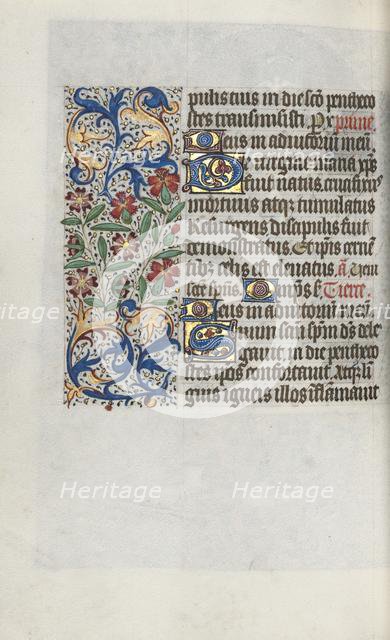 pulis tuis in die sco pentheco
stes transmisisti. Ps prime
Deus in adiutorium meu
De virgine maria xps
fuit natus, crucifixus
mortuus atqz tumulatus
Resurgens discipulis fuit
demonstratus. Et ipis cernen
tibz celis est eleuatus, a Veni
sce sps Tierce
Deus in adiutorium meu
Suum scm spm ds dele
gauit in die penthe
stes ipos confortauit. Atqz li
guis igneis illos inflammauit
Heritage
Heritage
Heritage
Heritage